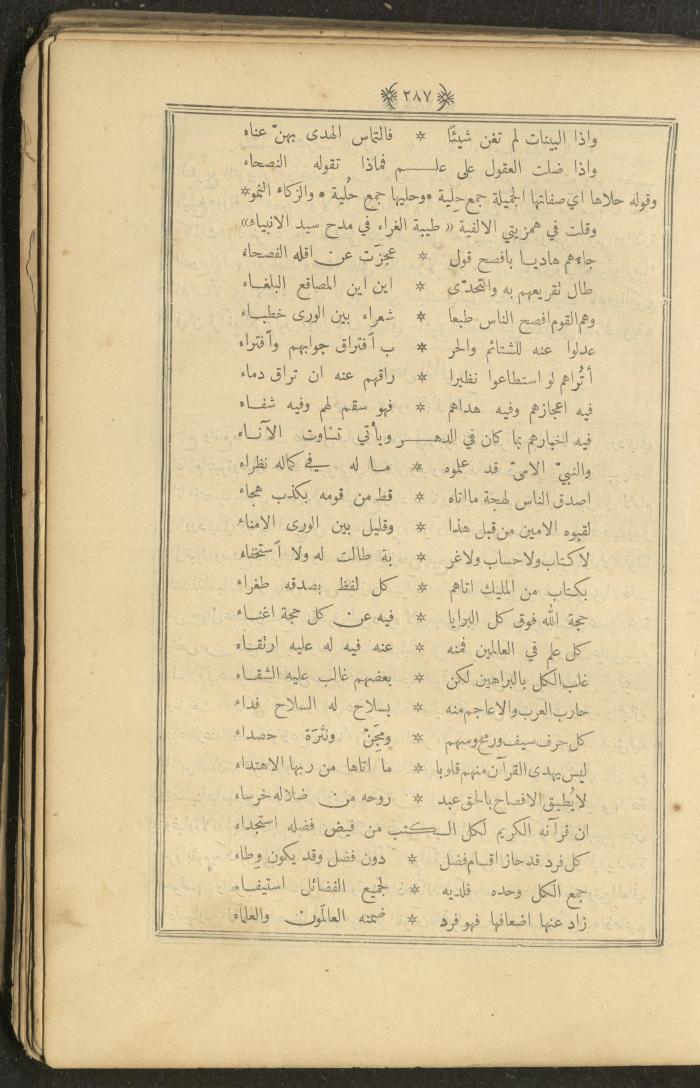 ﴿ ٢٨٧ ﴾
واذا البينات لم تغن شيئًا * فالتماس الهدى بهنّ عناء
واذا ضلت العقول على علـــم فماذا تقوله النصحاء
وقوله حلاها اي صفاتها الجميلة جمع حِلية * وحليها جمع حُلية * والزكاء النمو *
وقلت في همزيتي الالفية « طيبة الغراء في مدح سيد الانبياء »
جاءهم هاديا بافصح قول * عجزَت عن اقله الفصحاء
طال تقريعهم به والتحدّى * اين اين المصاقع البلغاء
وهم القوم افصح الناس طبعا * شعراء بين الورى خطباء
عدلوا عنه للشتائم والحر * ب اَفتراق جوابهم واَفتراء
أتُراهم لو استطاعوا نظيرا * راقهم عنه ان تراق دماء
فيه اعجازهم وفيه هداهم * فهو سقم لهم وفيه شفاء
فيه اخبارهم بما كان في الدهـــر ويأتي تساوت الآناء
والنبيّ الامىّ قد علموه * ما له في كماله نظراء
اصدق الناس لهجة مااتاه * قط من قومه بكذب هجاء
لقبوه الامين من قبل هذا * وقليل بين الورى الامناء
لا كتاب ولا حساب ولا غر * بة طالت له ولا اَستخفاء
بكتاب من المليك اتاهم * كل لفظ بصدقه طغراء
حجة الله فوق كل البرايا * فيه عن كل حجة اغناء
كل علم في العالمين فمنه * عنه فيه له عليه ارتقاء
غلب الكل بالبراهين لكن * بعضهم غالب عليه الشقاء
حارب العرب والاعاجم منه * بسلاح له السلاح فداء
كل حرف سيف ورمح وسهم * ومِجَنّ ونثرَة حصداء
ليس يهدى القرآن منهم قلوبا * ما اتاها من ربها الاهتداء
لا يُطيق الافصاح بالحق عبد * روحه من ضلاله خرساء
ان قرآنه الكريم لكل الـــكتب من فيض فضله استجداء
كل فرد قد حاز اقسام فضل * دون فضل وقد يكون وِطاء
جمع الكل وحده فلديه * لجميع الفضائل استيفاء
زاد عنها اضعافها فهو فرد * ضمنه العالمَون والعلماء